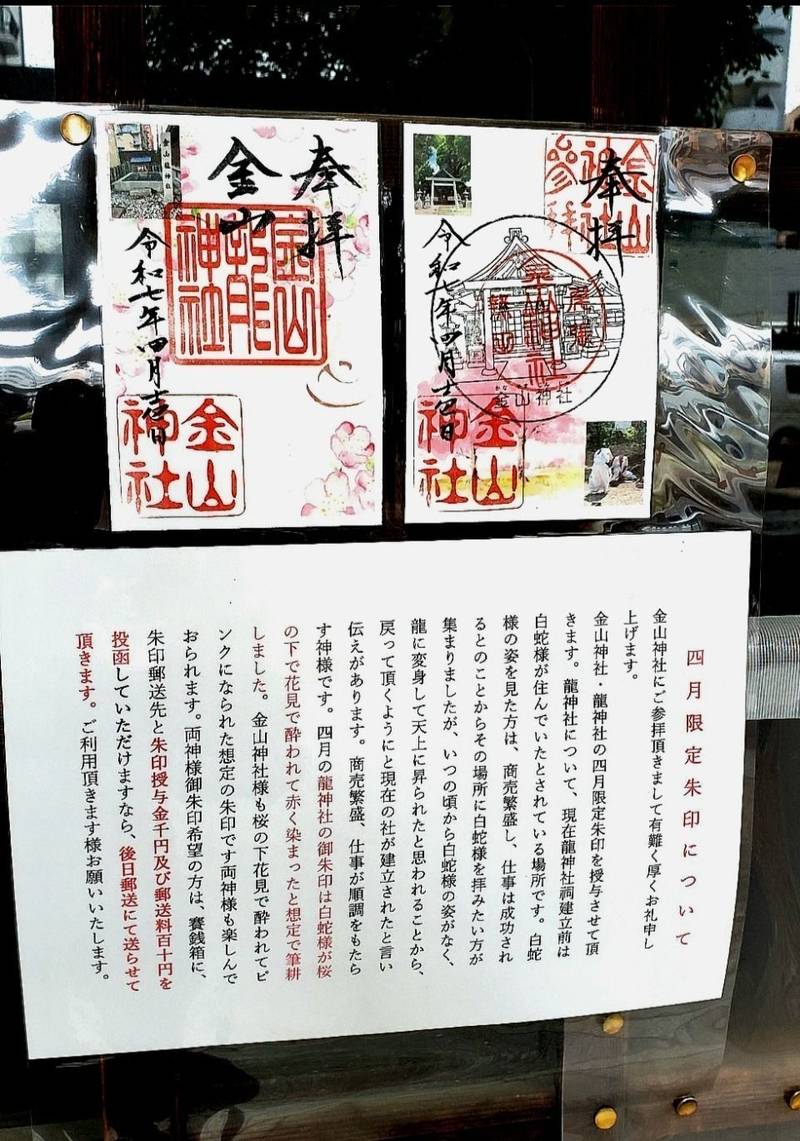 奉拝
金山
金山龍神社
令和七年四月吉日
金山神社
金山神社参拝
奉拝
金山神社
令和七年四月吉日
金山神社
金山神社
四月限定朱印について
金山神社にご参拝頂きまして有難く厚くお礼申し
上げます。
金山神社・龍神社の四月限定朱印を授与させて頂
きます。龍神社について、現在龍神社祠建立前は
白蛇様が住んでいたとされている場所です。白蛇
様の姿を見た方は、商売繁盛し、仕事は成功され
るとのことからその場所に白蛇様を拝みたい方が
集まりましたが、いつの頃から白蛇様の姿がなく、
龍に変身して天上に昇られたと思われることから、
戻って頂くようにと現在の社が建立されたと言い
伝えがあります。商売繁盛、仕事が順調をもたら
す神様です。四月の龍神社の御朱印は白蛇様が桜
の下で花見で酔われて赤く染まったと想定で筆耕
しました。金山神社様も桜の下花見で酔われてピ
ンクになられた想定の朱印です両神様も楽しんで
おられます。両神様御朱印希望の方は、賽銭箱に、
朱印郵送先と朱印授与金千円及び郵送料百十円を
投函していただけますなら、後日郵送にて送らせて
頂きます。ご利用頂きます様お願いいたします。